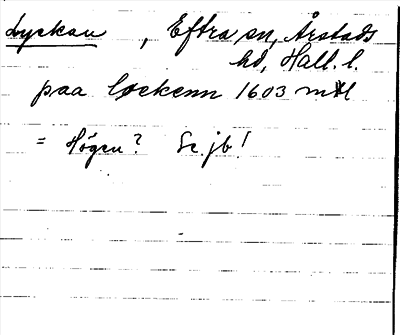 Lyckan, Eftra sn, Årstads
hd, Hall. l.
paa løckenn 1603 mtl
= Högen? Se jb!